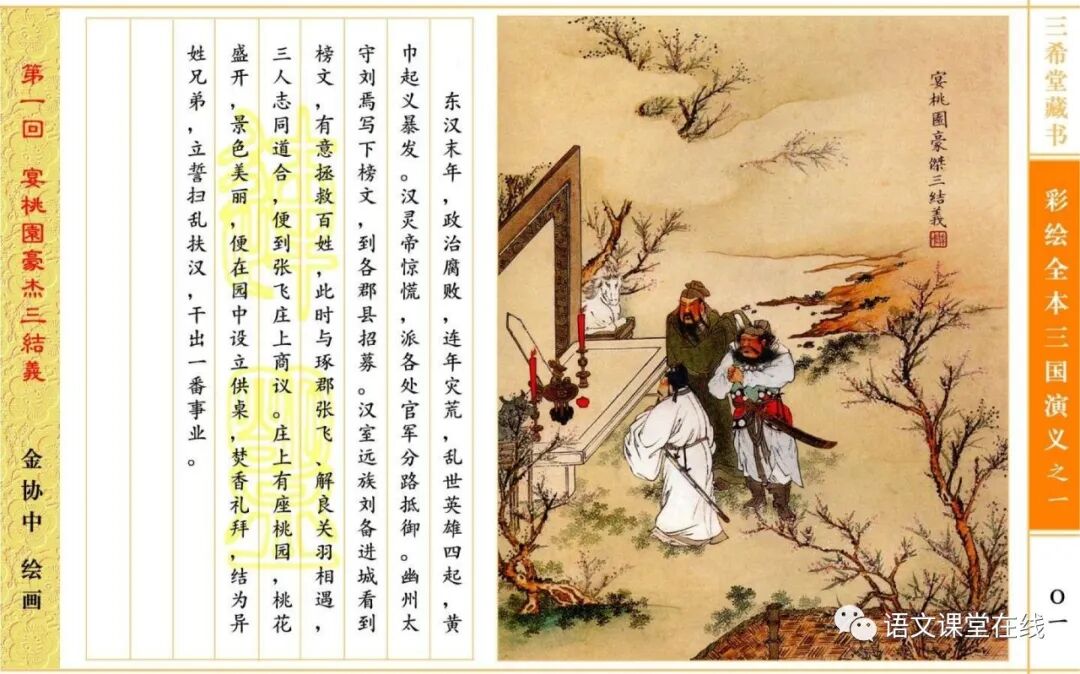 三希堂藏书
彩绘全本三国演义之一
〇一
宴桃園豪傑三結義
东汉末年，政治腐败，连年灾荒，乱世英雄四起，黄
巾起义暴发。汉灵帝惊慌，派各处官军分路抵御。幽州太
守刘焉写下榜文，到各郡县招募。汉室远族刘备进城看到
榜文，有意拯救百姓，此时与琢郡张飞、解良关羽相遇，
三人志同道合，便到张飞庄上商议。庄上有座桃园，桃花
盛开，景色美丽，便在园中设立供桌，焚香礼拜，结为异
姓兄弟，立誓扫乱扶汉，干出一番事业。
第一回 宴桃園豪杰三結義
金协中 绘画
语文课堂在线